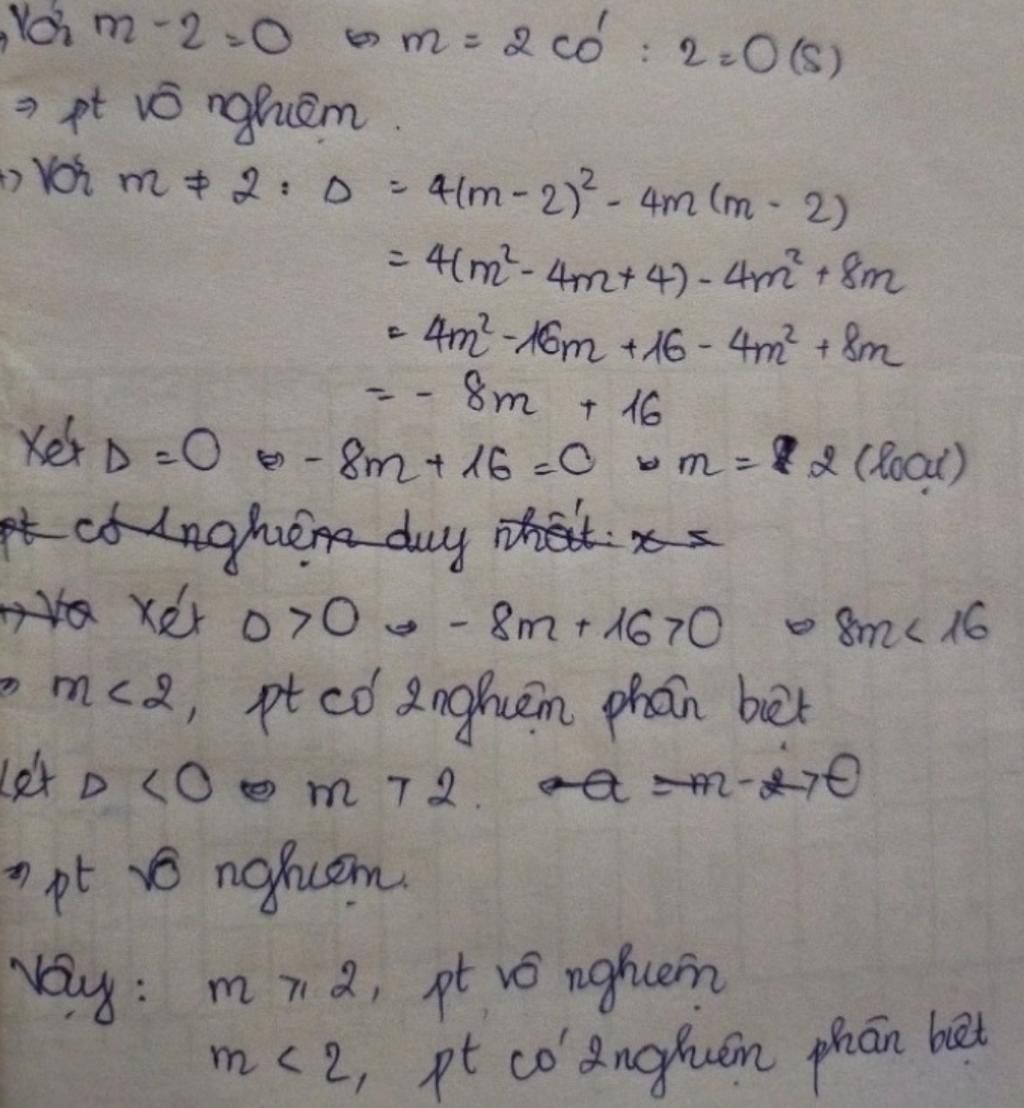 Với m - 2 = 0 ⇔ m = 2 có : 2 = 0 (S)
⇒ pt vô nghiệm.
+) Với m ≠ 2 : Δ = 4(m - 2)² - 4m (m - 2)
= 4(m² - 4m + 4) - 4m² + 8m
= 4m² - 16m + 16 - 4m² + 8m
= - 8m + 16
Xét Δ = 0 ⇔ - 8m + 16 = 0 ⇔ m = 2 (loại)
pt có 1 nghiệm duy nhất: x =
Xét Δ > 0 ⇔ - 8m + 16 > 0 ⇔ 8m < 16
⇔ m < 2, pt có 2 nghiệm phân biệt
Xét Δ < 0 ⇔ m > 2. a = m - 2 > 0
⇒ pt vô nghiệm.
Vậy : m ⩾ 2, pt vô nghiệm
m < 2, pt có 2 nghiệm phân biệt